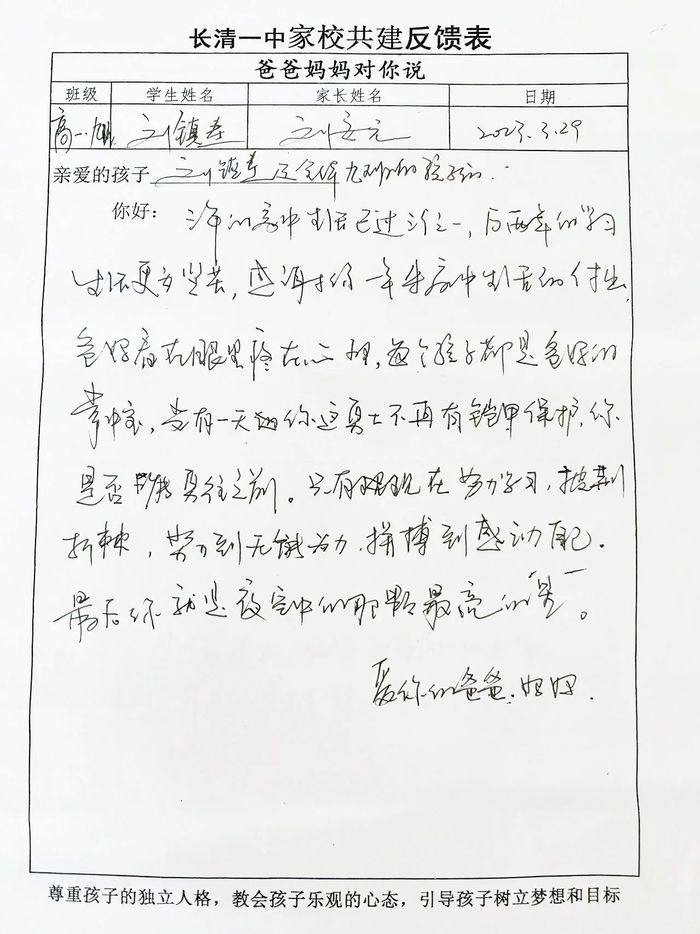 长清一中家校共建反馈表
爸爸妈妈对你说
班级 学生姓名 家长姓名 日期
高一.九班 刘镇 刘 元 2023.3.29
亲爱的孩子 刘镇 及全体九班的孩子们:
你好: 三年的高中生活已过三分之一,后两年的学习
生活更为坚苦,感谢你一年来高中生活的付出,
爸妈看在眼里疼在心里,每个孩子都是爸妈的
掌中宝,当有一天你这勇士不再有铠甲保护,你
是否 勇往之前。只有现在努力学习,披荆
斩棘,努力到无能为力,拼搏到感动自己。
最后你就是夜空中的那颗最亮的“星”。
爱你的爸爸.妈妈.
尊重孩子的独立人格,教会孩子乐观的心态,引导孩子树立梦想和目标